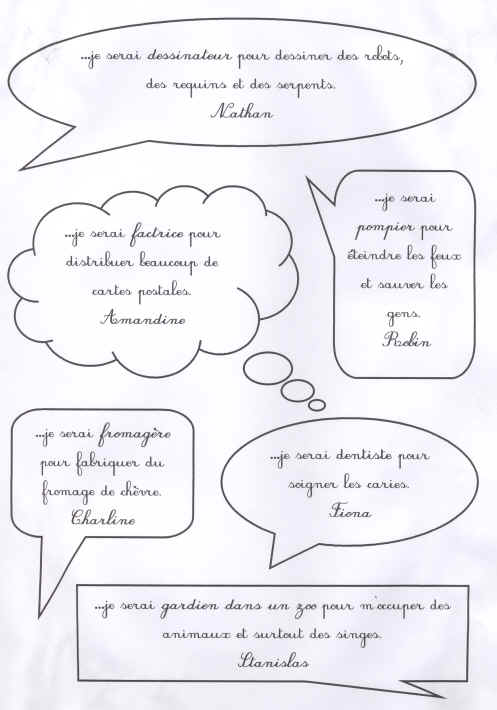 ...je serai dessinateur pour dessiner des robots,
des requins et des serpents.
Nathan
...je serai factrice pour
distribuer beaucoup de
cartes postales.
Amandine
...je serai
pompier pour
éteindre les feux
et sauver les
gens.
Robin
...je serai fromagère
pour fabriquer du
fromage de chèvre.
Charline
...je serai dentiste pour
soigner les caries.
Fiona
...je serai gardien dans un zoo pour m'occuper des
animaux et surtout des singes.
Stanislas